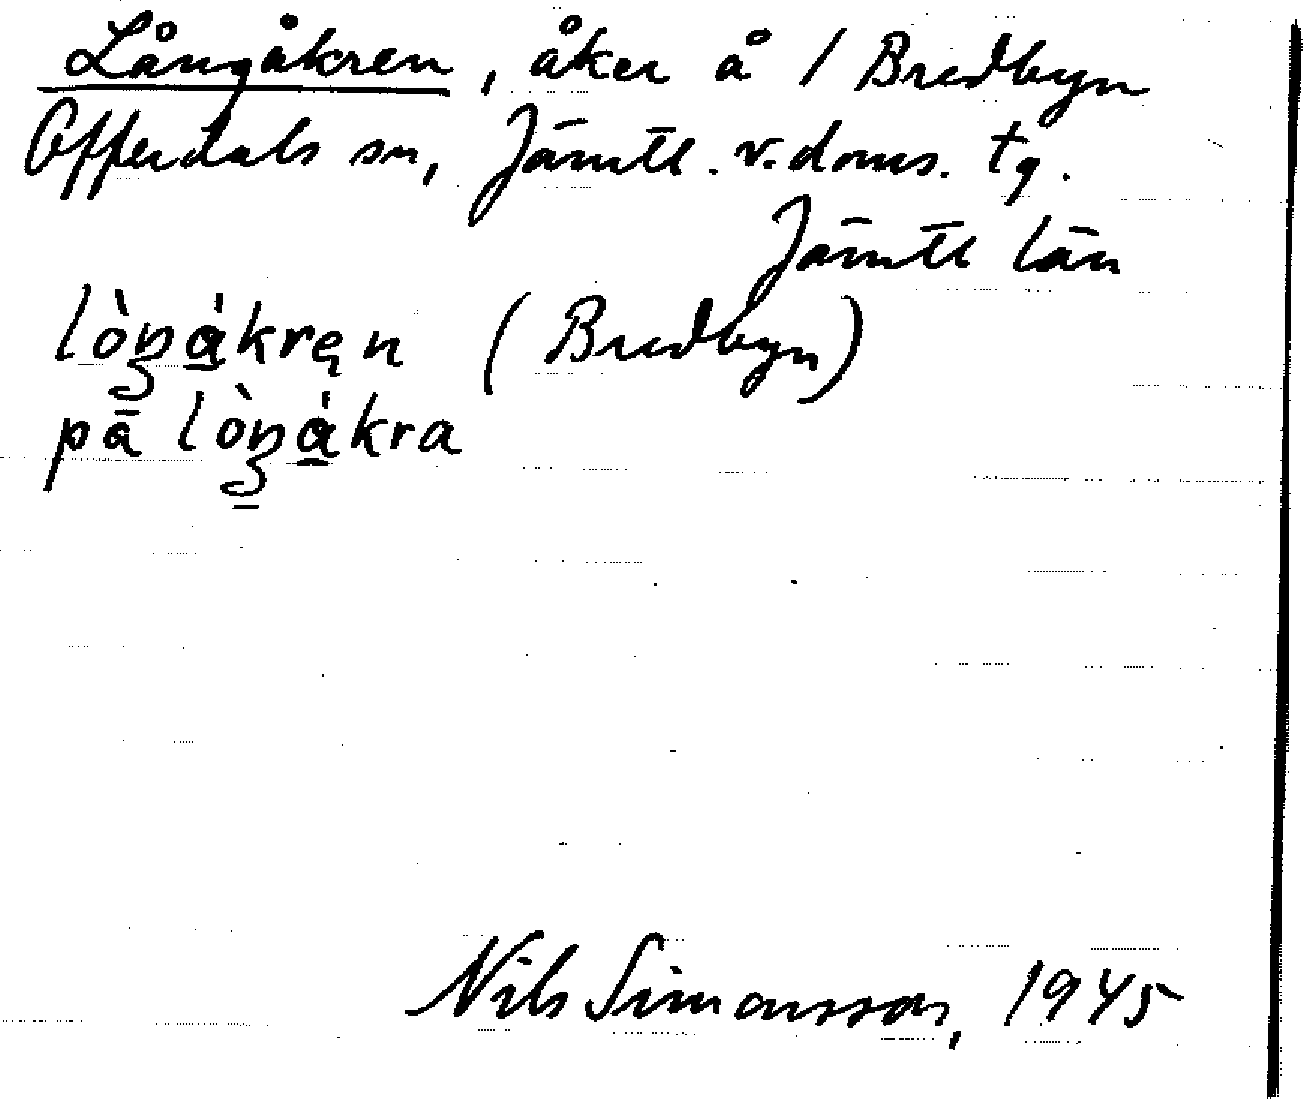 Långåkren, åker å / Bredbyn
Offerdals sn, Jämtl. v. doms. tg.
Jämtl län
lòŋákręn (Bredbyn)
pā lòŋákra
Nils Simonsson, 1945